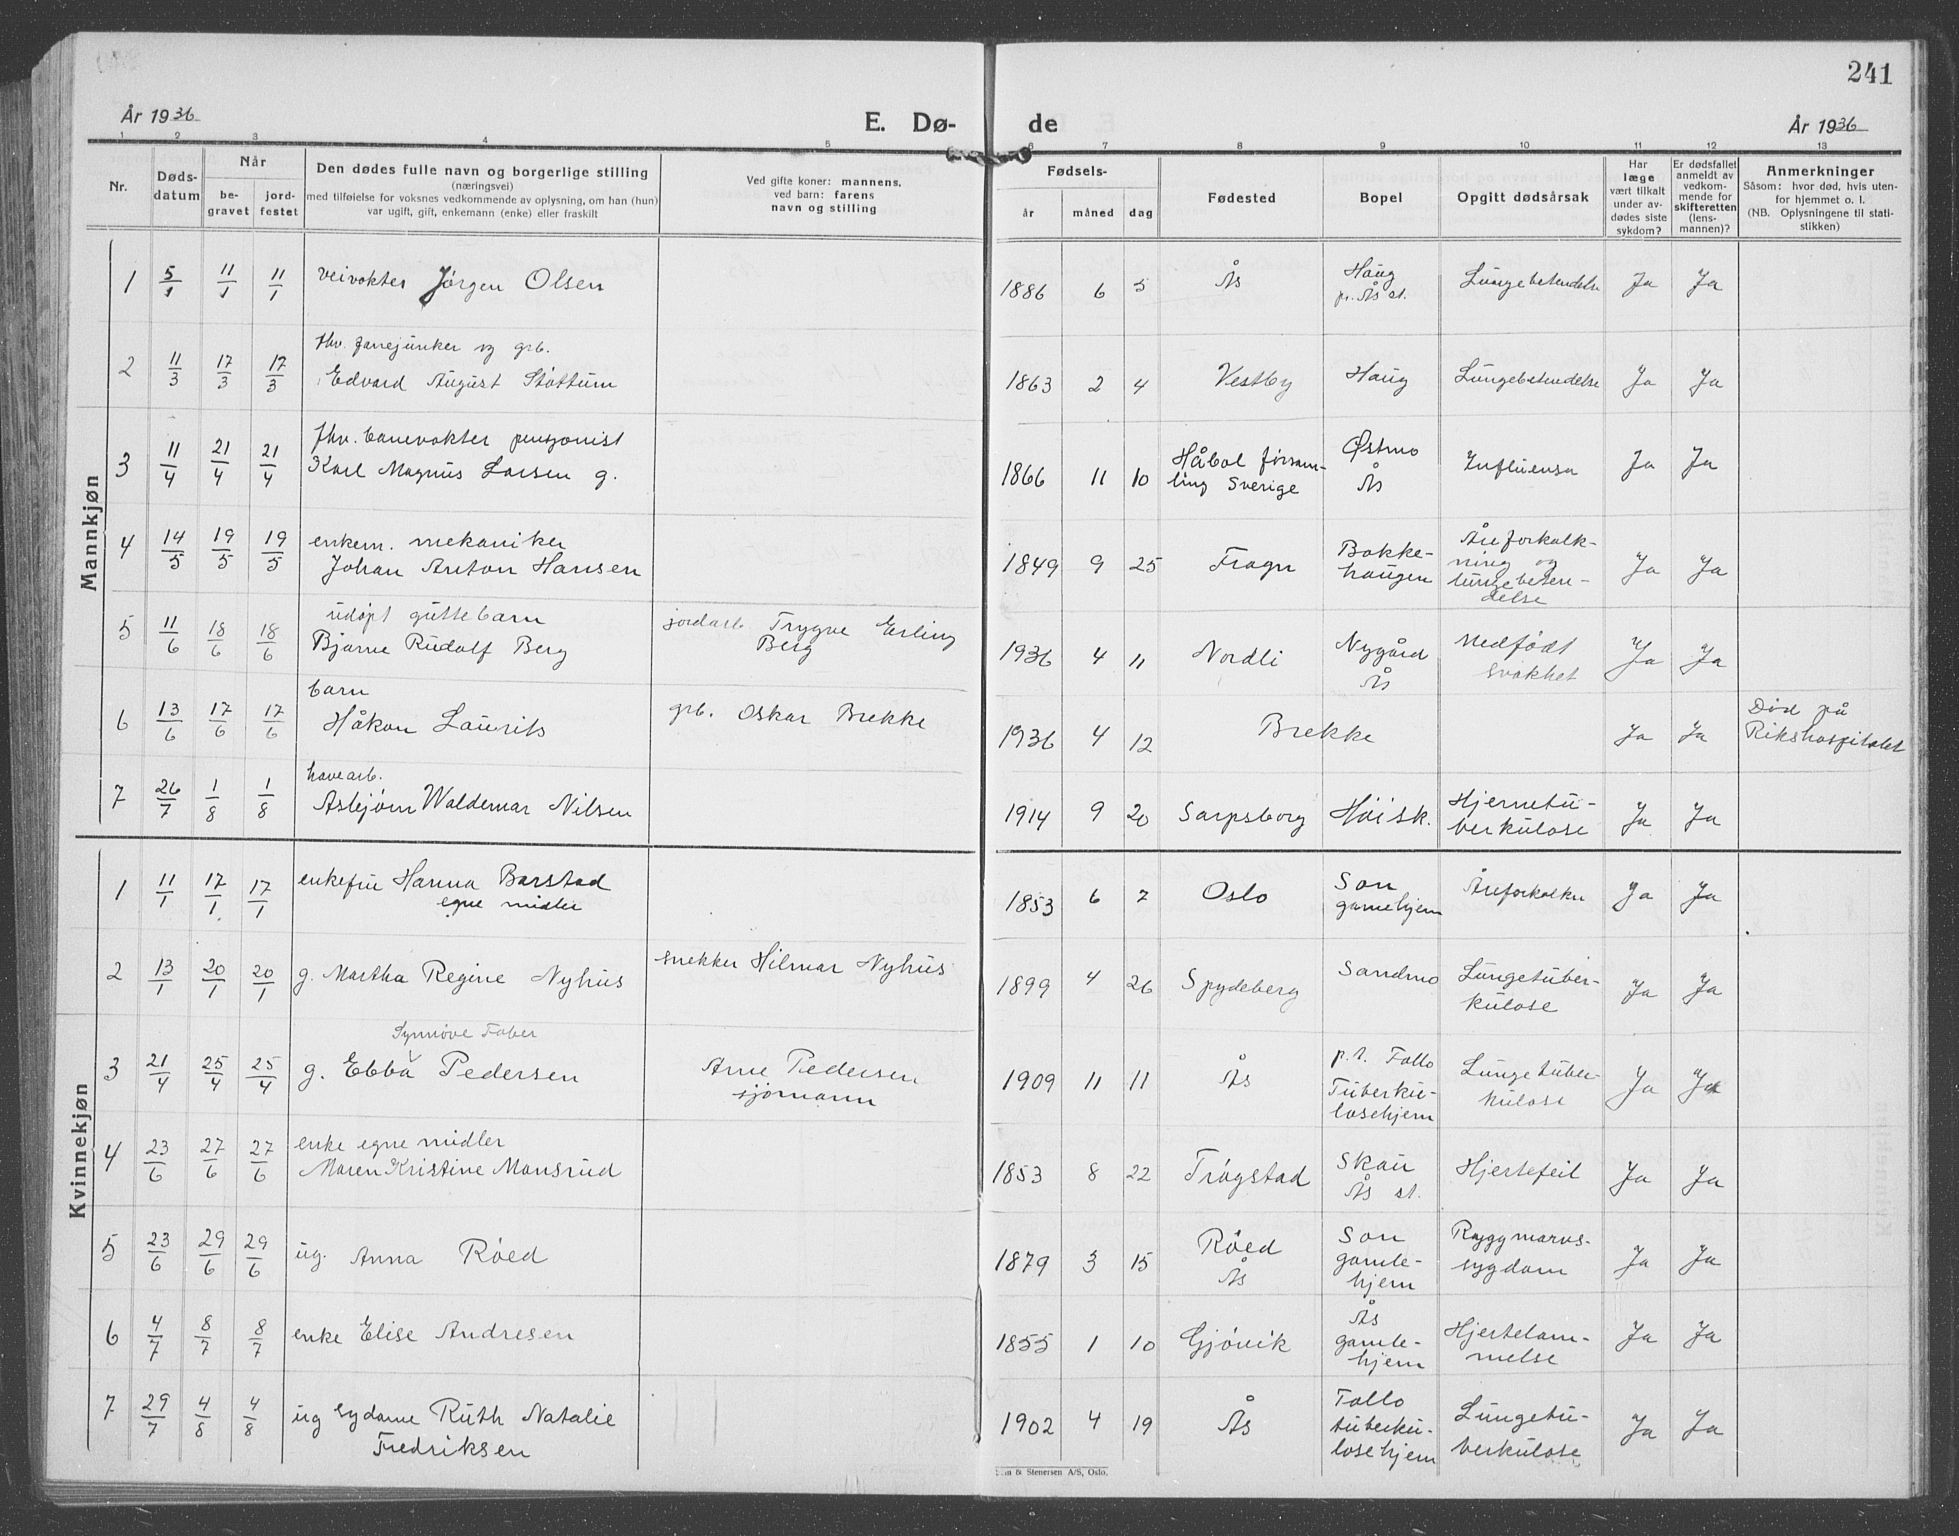 241
År 1936
E. Dø-
de
År 1936
1 2 3 4 5 6 7 8 9 10 11 12 13
Nr.
Døds-
datum
Når
be-
gravet
jord-
festet
Den dødes fulle navn og borgerlige stilling
(næringsvei)
med tilføielse for voksnes vedkommende av oplysning, om han (hun)
var ugift, gift, enkemann (enke) eller fraskilt
Ved gifte koner: mannens,
ved barn: farens
navn og stilling
Fødsels-
år måned dag
Fødested
Bopel
Opgitt dødsårsak
Har
læge
vært tilkalt
under av-
dødes siste
sykdom?
Er dødsfallet
anmeldt av
vedkom-
mende for
skifteretten
(lens-
mannen)?
Anmerkninger
Såsom: hvor død, hvis uten-
for hjemmet o. l.
(NB. Oplysningene til stati-
stikken)
Mannkjøn
1 5/1 11/1 11/1 veivokter Jørgen Olsen 1886 6 5 Ås Haug Lungebetendelse Ja Ja
pr. Ås st.
2 11/3 17/3 17/3 fhv. fanejunker og grb.
Edvard August Støttum 1863 2 4 Vestby Haug Lungebetendelse Ja Ja
3 11/4 21/4 21/4 fhv. banevokter pensjonist
Karl Magnus Larsen g. 1866 11 10 Håbol forsam- Østmo Influensa Ja Ja
ling Sverige Ås
4 14/5 19/5 19/5 enkem. mekaniker
Johan Anton Hansen 1849 9 25 Frogn Bakke- Åreforkalk- Ja Ja
haugen ning og
lungebeten-
delse
5 11/6 18/6 18/6 udøpt guttebarn jordarb. Trygve Erling
Bjarne Rudolf Berg Berg 1936 4 11 Nordli Nygård Medfødt Ja Ja
Ås svakhet
6 13/6 17/6 17/6 barn
Håkon Laurits grb. Oskar Brekke 1936 4 12 Brekke Ja Ja Død på
Rikshospitalet
7 26/7 1/8 1/8 havearb.
Asbjørn Waldemar Nilsen 1914 9 20 Sarpsborg Høisk. Hjernetu- Ja Ja
berkulose
Kvinnekjøn
1 11/1 17/1 17/1 enkefru Hanna Barstad 1853 6 7 Oslo Son Åreforkalkn Ja Ja
egne midler gamlehjem
2 13/1 20/1 20/1 g. Martha Regine Nyhus snekker Hilmar Nyhus 1899 4 26 Spydeberg Sandmo Lungetuber- Ja Ja
kulose
3 21/4 25/4 25/4 Synnøve Faber
g. Ebba Pedersen Arne Pedersen 1909 11 11 Ås p.t. Follo Lungetuber- Ja Ja
sjømann Tuberku- kulose
losehjem
4 23/6 27/6 27/6 enke egne midler
Maren Kristine Monsrud 1853 8 22 Trøgstad Skau Hjertefeil Ja Ja
Ås st.
5 23/6 29/6 29/6 ug. Anna Røed 1879 3 15 Røed Son Ryggmarvs- Ja Ja
Ås gamle- sygdom
hjem
6 4/7 8/7 8/7 enke Elise Andresen 1855 1 10 Gjøvik Ås Hjertelam- Ja Ja
gamle- melse
hjem
7 29/7 4/8 4/8 ug sydame Ruth Natalie 1902 4 19 Ås Follo Lungetu- Ja Ja
Fredriksen tuberku- berkulose
losehjem
& Stenersen A/S, Oslo.